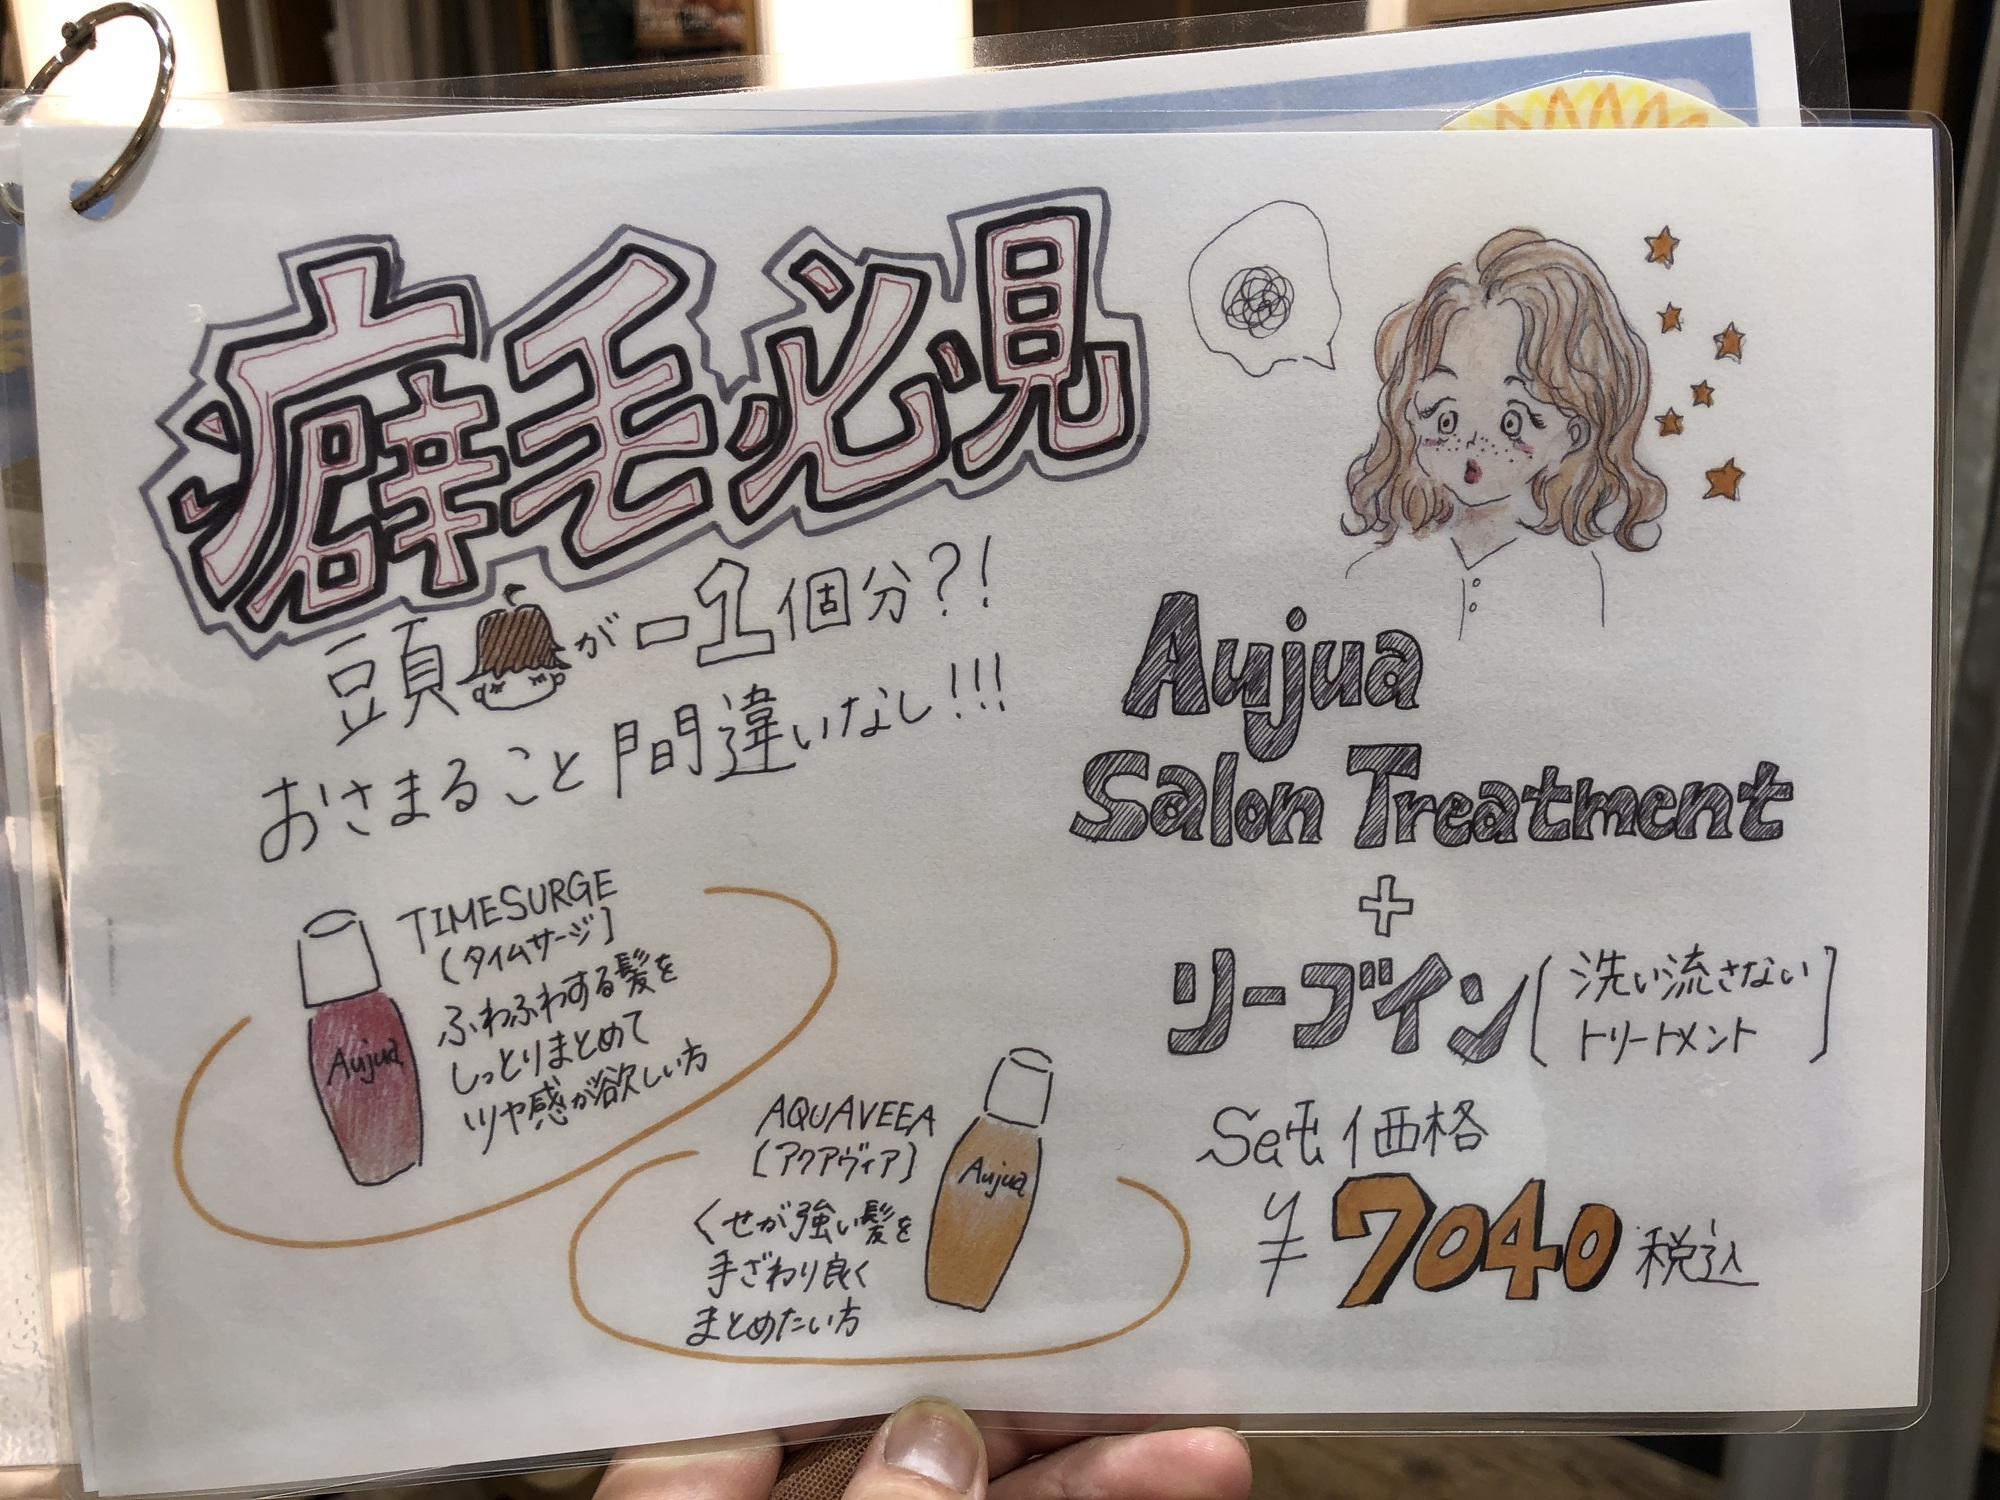 癖毛必見
頭が-1個分?!
おさまること間違いなし!!!
Aujua
Salon Treatment
+
リーブイン(洗い流さない
トリートメント)
Set価格
¥7040税込
TIMESURGE
(タイムサージ)
ふわふわする髪を
しっとりまとめて
ツヤ感が欲しい方
Aujua
AQUAVEEA
(アクアヴィア)
くせが強い髪を
手ざわり良く
まとめたい方
Aujua